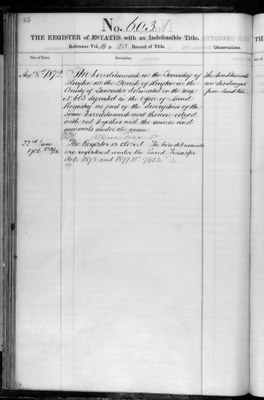 No. 603
THE REGISTER of ESTATES with an Indefeasible Title.
Reference Vol. Record of Title
Observations.
Date of Entry.
Description.
1872. The hereditaments in the Township of
in the Parish of in the
County of Lancaster delineated in the map
No 603 deposited in the Office of Land
Registry as part of the description of the
same hereditaments and thereon edged
with red together with the mines and
minerals under the same
The hereditaments
are discharged
from Land Tax.
22nd June
1906
The Register is closed. The hereditaments
are registered under the Land Transfer
Acts 1875 and 1897